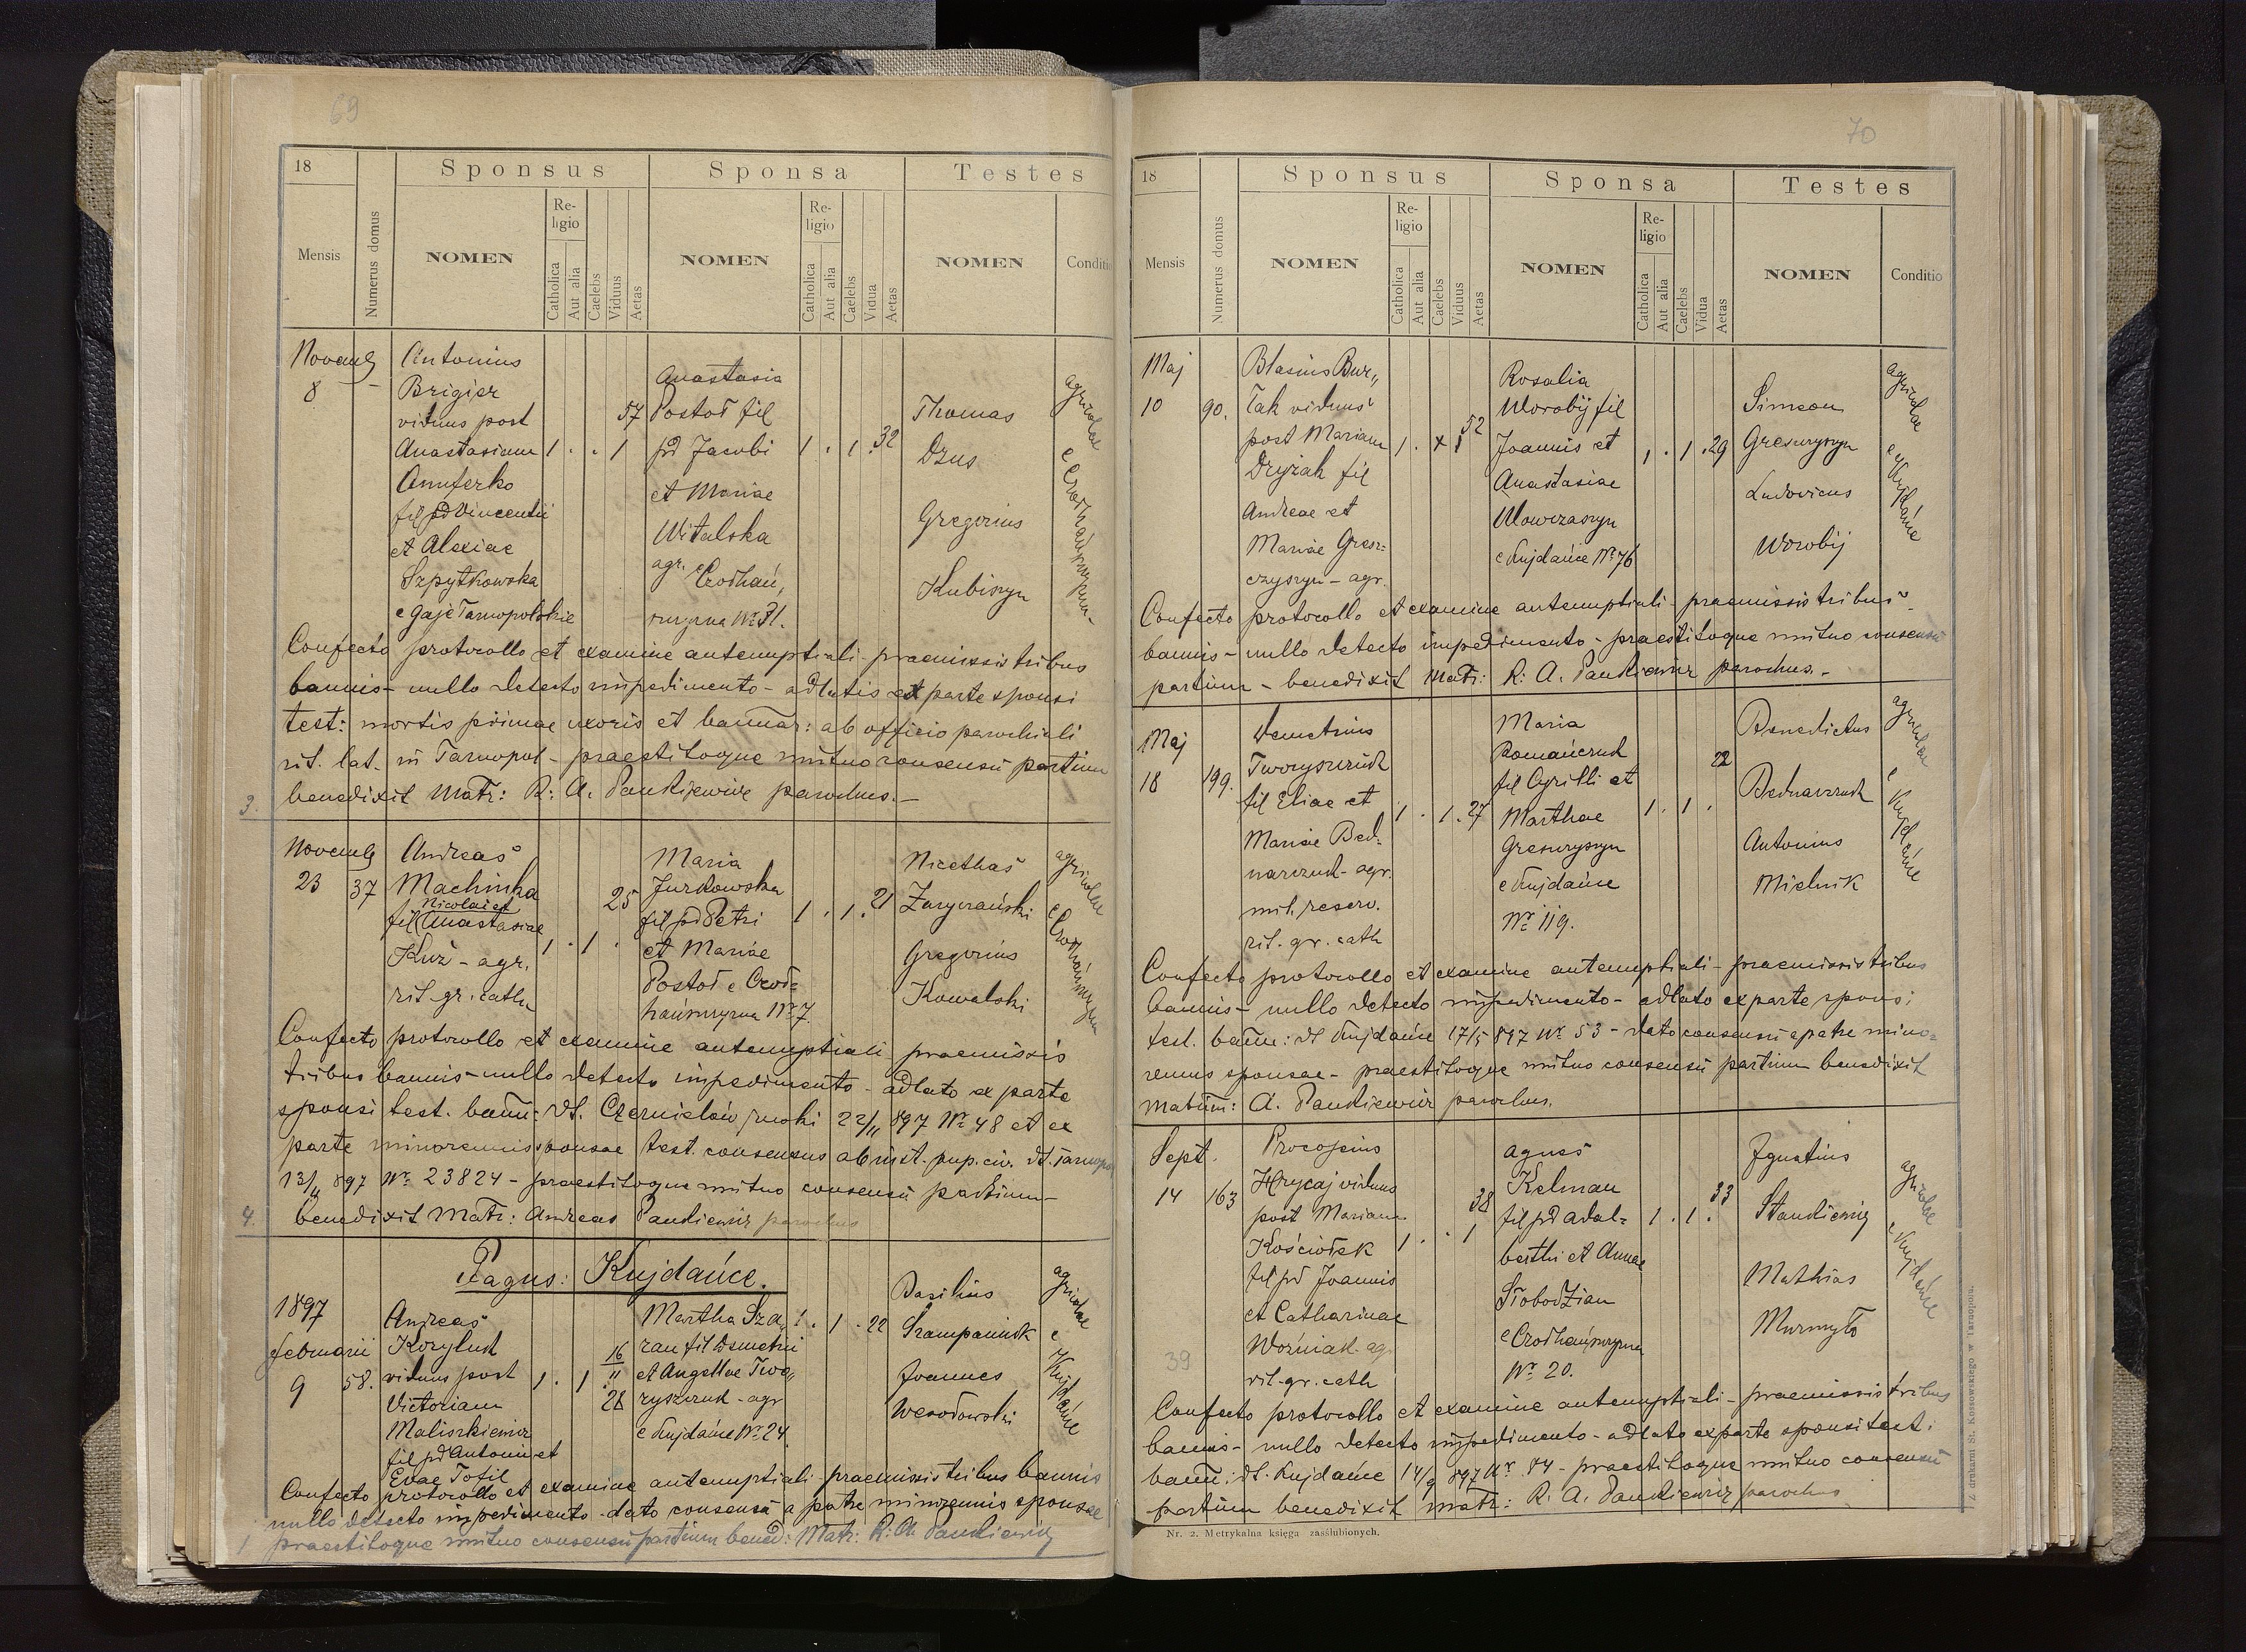 69
18
Sponsus
Sponsa
Testes
Mensis
Numerus domus
NOMEN
Re-
ligio
Catholica
Aut alia
Caelebs
Viduus
Aetas
NOMEN
Re-
ligio
Catholica
Aut alia
Caelebs
Vidua
Aetas
NOMEN
Conditio
Novemb
8 –
Antonius
Brigier
viduus post
Anastasiam
Onuferko
fil pd Vincentii
et Alexiae
Szpytkowska
e Gaje Tarnopolskie
1 . . 1 57
Anastasia
Postoł fil
pd Jacobi
et Mariae
Witalska
agr. e Czołhań„
szczyzna Nr 31.
1 . 1 . 32
Thomas
Dzus
Gregorius
Kubiszyn
agricolae
e Czołhańszczyzna
Confecto protocollo et examine antenuptiali – praemissis tribus
bannis – nullo detecto impedimento – adlatis ex parte sponsi
test: mortis primae uxoris et bannar: ab officio parochiali
rit. lat. in Tarnopol – praestitoque mutuo consensu partium
benedixit Matr: R: A. Pankiewicz parochus. –
3.
Novemb
23
37
Andreas
Machinka
Nicolai et
fil Anastasiae
Kuź – agr.
rit. gr. cath
1 . 1 . 25
Maria
Jurkowska
fil pd Petri
et Mariae
Postoł e Czoł=
hańszczyzna Nr 7.
1 . 1 . 21
Nicethas
Zaryczański
Gregorius
Kowalski
agricolae
e Czołhańszczyzna
Confecto protocollo et examine antenuptiali praemissis
tribus bannis – nullo detecto impedimento – adlato ex parte
sponsi test. bann: dt. Czernielów ruski 22/11 897 Nr 48 et ex
parte minorennis sponsae test. consensus ab inst. pup. civ. dt. Tarnopol
13/11 897 Nr 23824 – praestitoque mutuo consensu partium –
benedixit Matr: Andreas Pankiewicz parochus
4.
Pagus: Kujdańce.
1897
Februarii
9
58.
Andreas
Koryluk
viduus post
Victoriam
Maliszkiewicz
fil pd Antonii et
Evae Tofil
1 . 1
16
11
28
Martha Sza„
ran fil Demetrii
et Angellae Two„
ryszczuk – agr
e Kujdańce Nr 24.
1 . 1 . 22
Basilius
Szampaniuk
Joannes
Wesołowski
agricolae
e Kujdańce
Confecto protocollo et examine antenuptiali praemissis tribus bannis
nullo detecto impedimento – dato consensu a patre minorennis sponsae
praestitoque mutuo consensu partium bened: Matr: R: A. Pankiewicz
1
70
18
Sponsus
Sponsa
Testes
Mensis
Numerus domus
NOMEN
Re-
ligio
Catholica
Aut alia
Caelebs
Viduus
Aetas
NOMEN
Re-
ligio
Catholica
Aut alia
Caelebs
Vidua
Aetas
NOMEN
Conditio
Maj
10
90.
Blasius Bur„
łak viduus
post Mariam
Dryżak fil
Andreae et
Mariae Gresz=
czyszyn – agr.
1 . + 1 52
Rosalia
Worobij fil
Joannis et
Anastasiae
Wowczaszyn
e Kujdańce Nr 76
1 . 1 . 29
Simeon
Greszczyszyn
Ludovicus
Worobij
agricolae
e Kujdańce
Confecto protocollo et examine antenuptiali – praemissis tribus
bannis – nullo detecto impedimento – praestitoque mutuo consensu
partium – benedixit Matr: R: A. Pankiewicz parochus. –
Maj
18
199.
Demetrius
Tworyszczuk
fil Eliae et
Mariae Bed=
narczuk – agr.
mil. reserv.
rit. gr. cath
1 . 1 . 27
Maria
Romańczuk
fil Cyrilli et
Marthae
Greszczyszyn
e Kujdańce
Nr 119.
1 . 1 . 22
Benedictus
Bednarczuk
Antonius
Mielnik
agricolae
e Kujdańce
Confecto protocollo et examine antenuptiali – praemissis tribus
bannis – nullo detecto impedimento – adlato ex parte sponsi
test. bann: dt Kujdańce 17/5 897 Nr 53 – dato consensu a patre mino=
rennis sponsae – praestitoque mutuo consensu partium benedixit
matrim: A. Pankiewicz parochus.
Sept.
14
163
Procopius
Hrycaj viduus
post Mariam
Kościołek
fil pd Joannis
et Catharinae
Woźniak – agr
rit. gr. cath
1 . . 1 38
Agnes
Kelman
fil pd Adal=
berthi et Annae
Słobodzian
e Czołhańszczyzna
Nr 20.
1 . 1 . 33
Ignatius
Stankiewicz
Mathias
Murmyło
agricolae
e Kujdańce
39
Confecto protocollo et examine antenuptiali – praemissis tribus
bannis – nullo detecto impedimento – adlato ex parte sponsi test.
bann: dt. Kujdańce 14/9 897 Nr 84 – praestitoque mutuo consensu
partium benedixit matr: R: A. Pankiewicz parochus
Nr. 2. Metrykalna księga zaślubionych.
Z drukarni St. Kossowskiego w Tarnopolu.